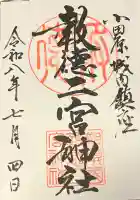 小田原城内鎮座
報徳二宮神社
令和八年七月四日